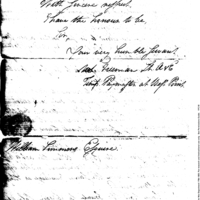 With sincere respect.
I have the honour to be,
Sir,
Your very humble Servant.
Freeman Lt. A & E
Temp Paymaster at West Point.
William Simmons Esquire